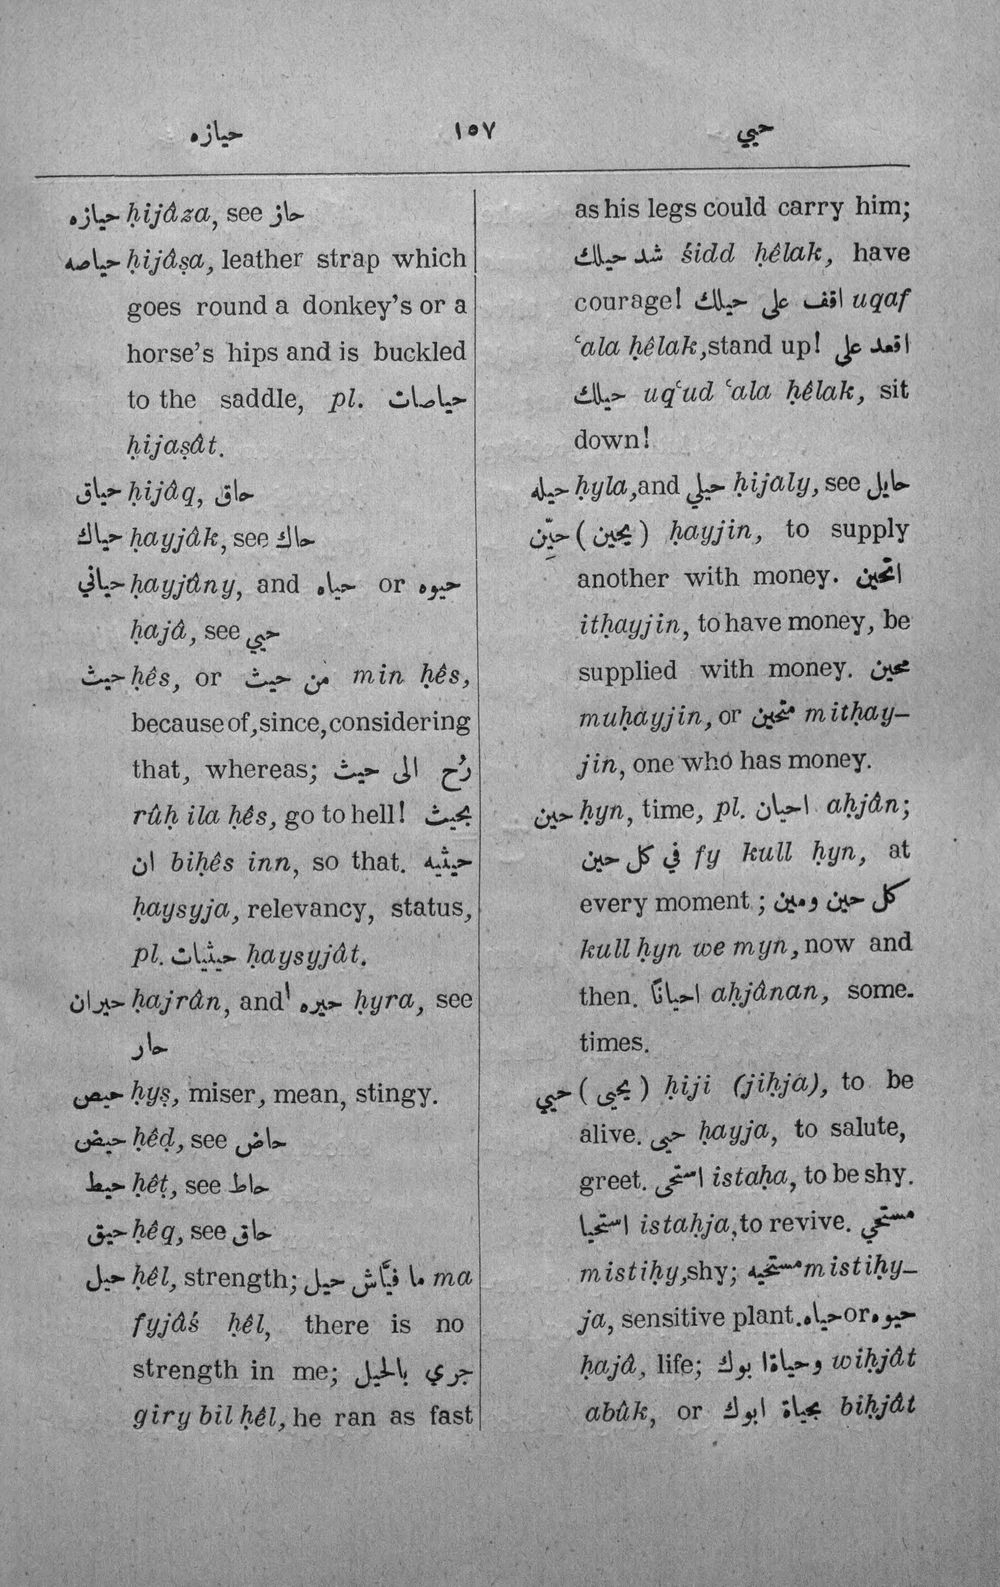 حيازه ١٥٧ حيي
حيازه ḥijâza, see حاز
حياصه ḥijâṣa, leather strap which
goes round a donkey's or a
horse's hips and is buckled
to the saddle, pl. حياصات
ḥijaṣât.
حياق ḥijâq, حاق
حياك ḥayjâk, see حاك
حياني ḥayjâny, and حياه or حيوه
ḥajâ, see حيي
حيث ḥês, or من حيث min ḥês,
because of, since, considering
that, whereas; رُح الى حيث
rûḥ ila ḥês, go to hell! بحيث
ان biḥês inn, so that. حيثيه
ḥaysyja, relevancy, status,
pl. حيثيات ḥaysyjât.
حيران ḥajrân, and حيره ḥyra, see
حار
حيص ḥyṣ, miser, mean, stingy.
حيض ḥêḍ, see حاض
حيط ḥêṭ, see حاط
حيق ḥêq, see حاق
حيل ḥêl, strength; ما فيَّاش حيل ma
fyjâś ḥêl, there is no
strength in me; جري بالحيل
giry bil ḥêl, he ran as fast
as his legs could carry him;
شد حيلك śidd ḥêlak, have
courage! اقف على حيلك uqaf
ʿala ḥêlak, stand up! اقعد على
حيلك uqʿud ʿala ḥêlak, sit
down!
حيله ḥyla, and حيلي ḥijaly, see حايل
حيِّن (يحين) ḥayjin, to supply
another with money. اتحين
itḥayjin, to have money, be
supplied with money. محين
muḥayjin, or متحين mitḥay-
jin, one who has money.
حين ḥyn, time, pl. احيان aḥjân;
في كل حين fy kull ḥyn, at
every moment; كل حين ومين
kull ḥyn we myn, now and
then. احياناً aḥjânan, some-
times.
حيي (يحيى) ḥiji (jiḥja), to be
alive. حيى ḥayja, to salute,
greet. استحى istaḥa, to be shy.
استحيا istaḥja, to revive. مستحي
mistiḥy, shy; مستحيه mistiḥy-
ja, sensitive plant. حياه or حيوه
ḥajâ, life; وحياة ابوك wiḥjât
abûk, or بحياة ابوك biḥjât